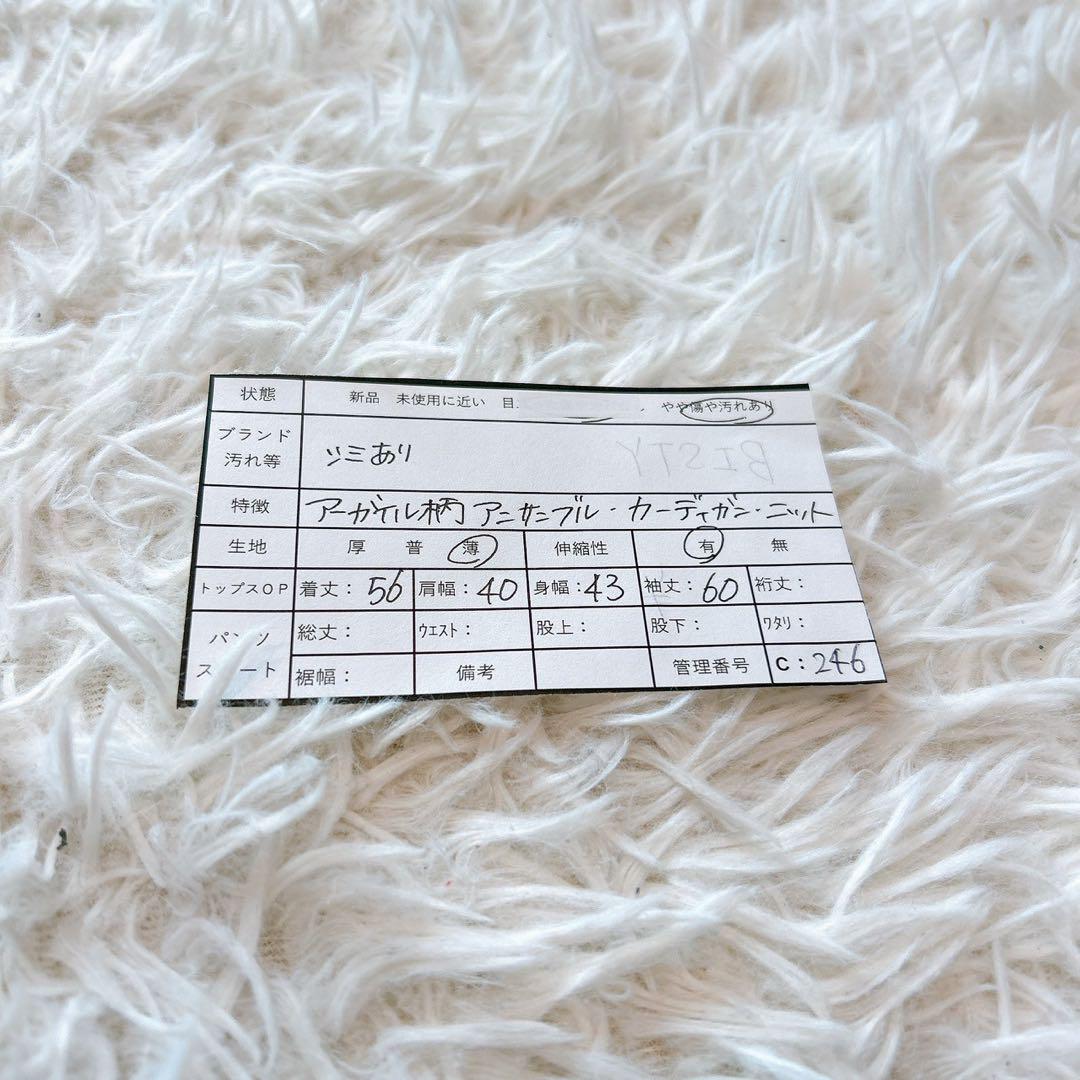 状態 新品 未使用に近い 目 やや傷や汚れあり
ブランド
汚れ等 シミあり
特徴 アーガイル柄 アンサンブル・カーディガン・ニット
生地 厚 普 薄 伸縮性 有 無
トップスOP 着丈：56 肩幅：40 身幅：43 袖丈：60 裄丈：
パンツ 総丈： ウエスト： 股上： 股下： ワタリ：
スート 裾幅： 備考 管理番号 C：246